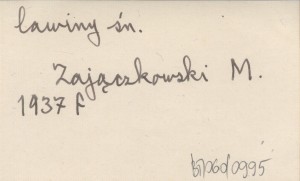 lawiny śn.
Zajączkowski M.
1937 f